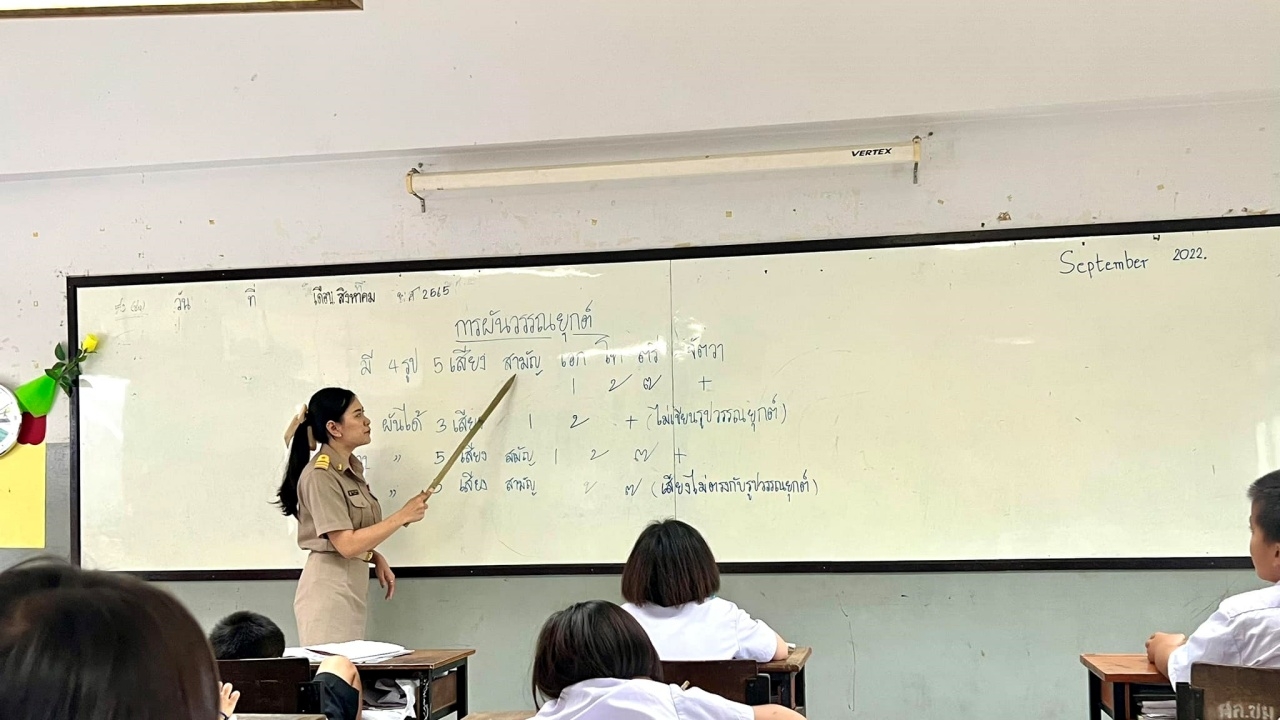 VERTEX
September 2022.
วัน ที่ เดือน สิงหาคม พ.ศ 2565
การผันวรรณยุกต์
มี 4 รูป 5 เสียง สามัญ เอก โท ตรี จัตวา
1 2 ๗ +
ผันได้ 3 เสียง 1 2 + (ไม่เขียนรูปวรรณยุกต์)
" 5 เสียง สามัญ 1 2 ๗ +
" เสียง สามัญ 2 ๗ (เสียงไม่ตรงกับรูปวรรณยุกต์)